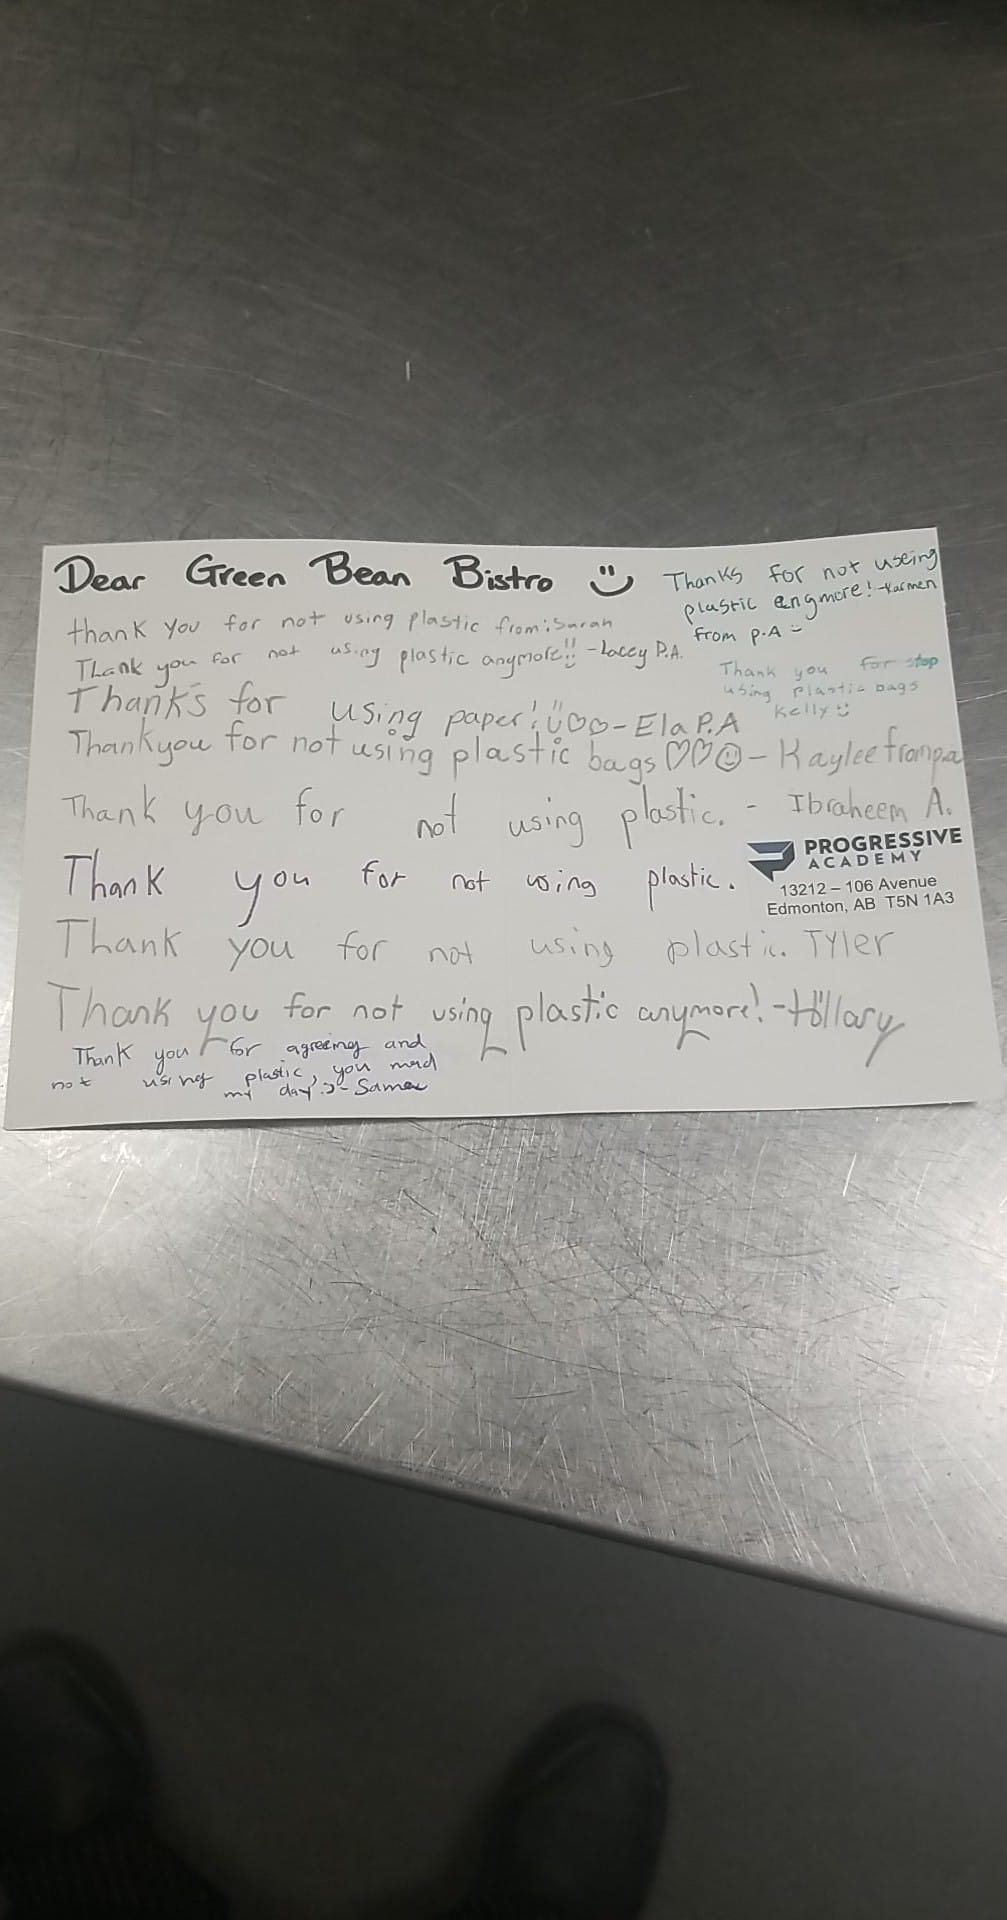 Dear Green Bean Bistro
thank you for not using plastic from: Sarah
Thank you for not using plastic anymore!! - Lacey P.A.
Thanks for using paper! - Ela P.A
Thankyou for not using plastic bags - Kaylee from p.a
Thank you for not using plastic. - Ibraheem A.
Thank you for not using plastic.
Thank you for not using plastic. TYLER
Thank you for not using plastic anymore! - Hillary
Thank you for agreeing and
not using plastic, you mad
my day :) -
Thanks for not useing
plastic engmore! - Karmen
from p.A
Thank you for stop
using plastic bags
Kelly
PROGRESSIVE
ACADEMY
13212 – 106 Avenue
Edmonton, AB T5N 1A3